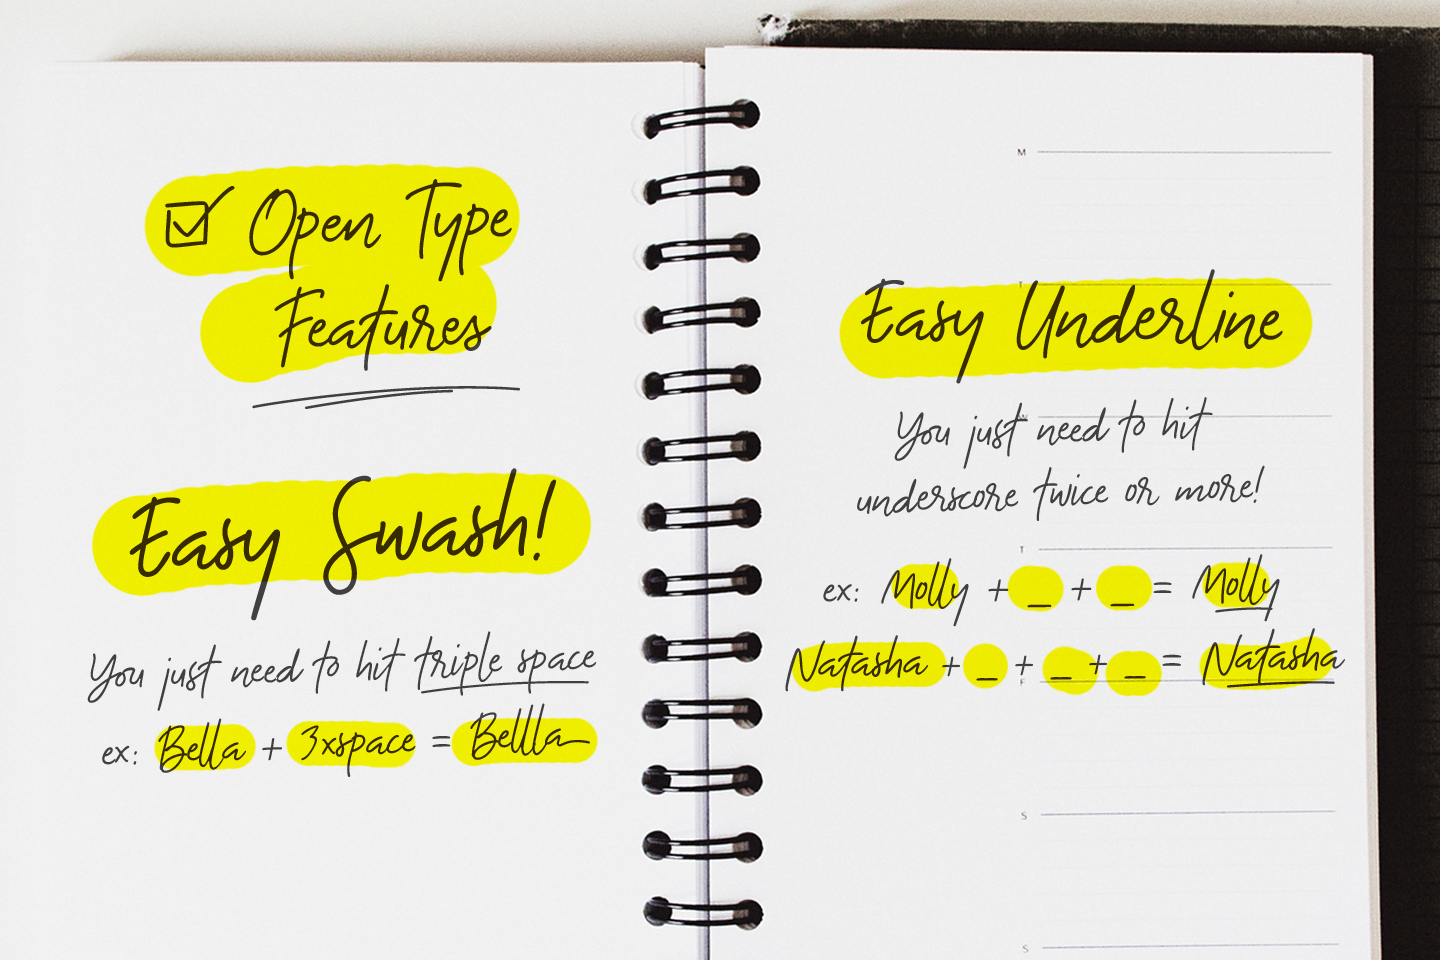 Open Type
Features
Easy Swash!
You just need to hit triple space
ex: Bella + 3xspace = Bellla
M
T
Easy Underline
W
You just need to hit
underscore twice or more!
T
ex: Molly + _ + _ = Molly
Natasha + _ + _ + _ = Natasha
F
S
S